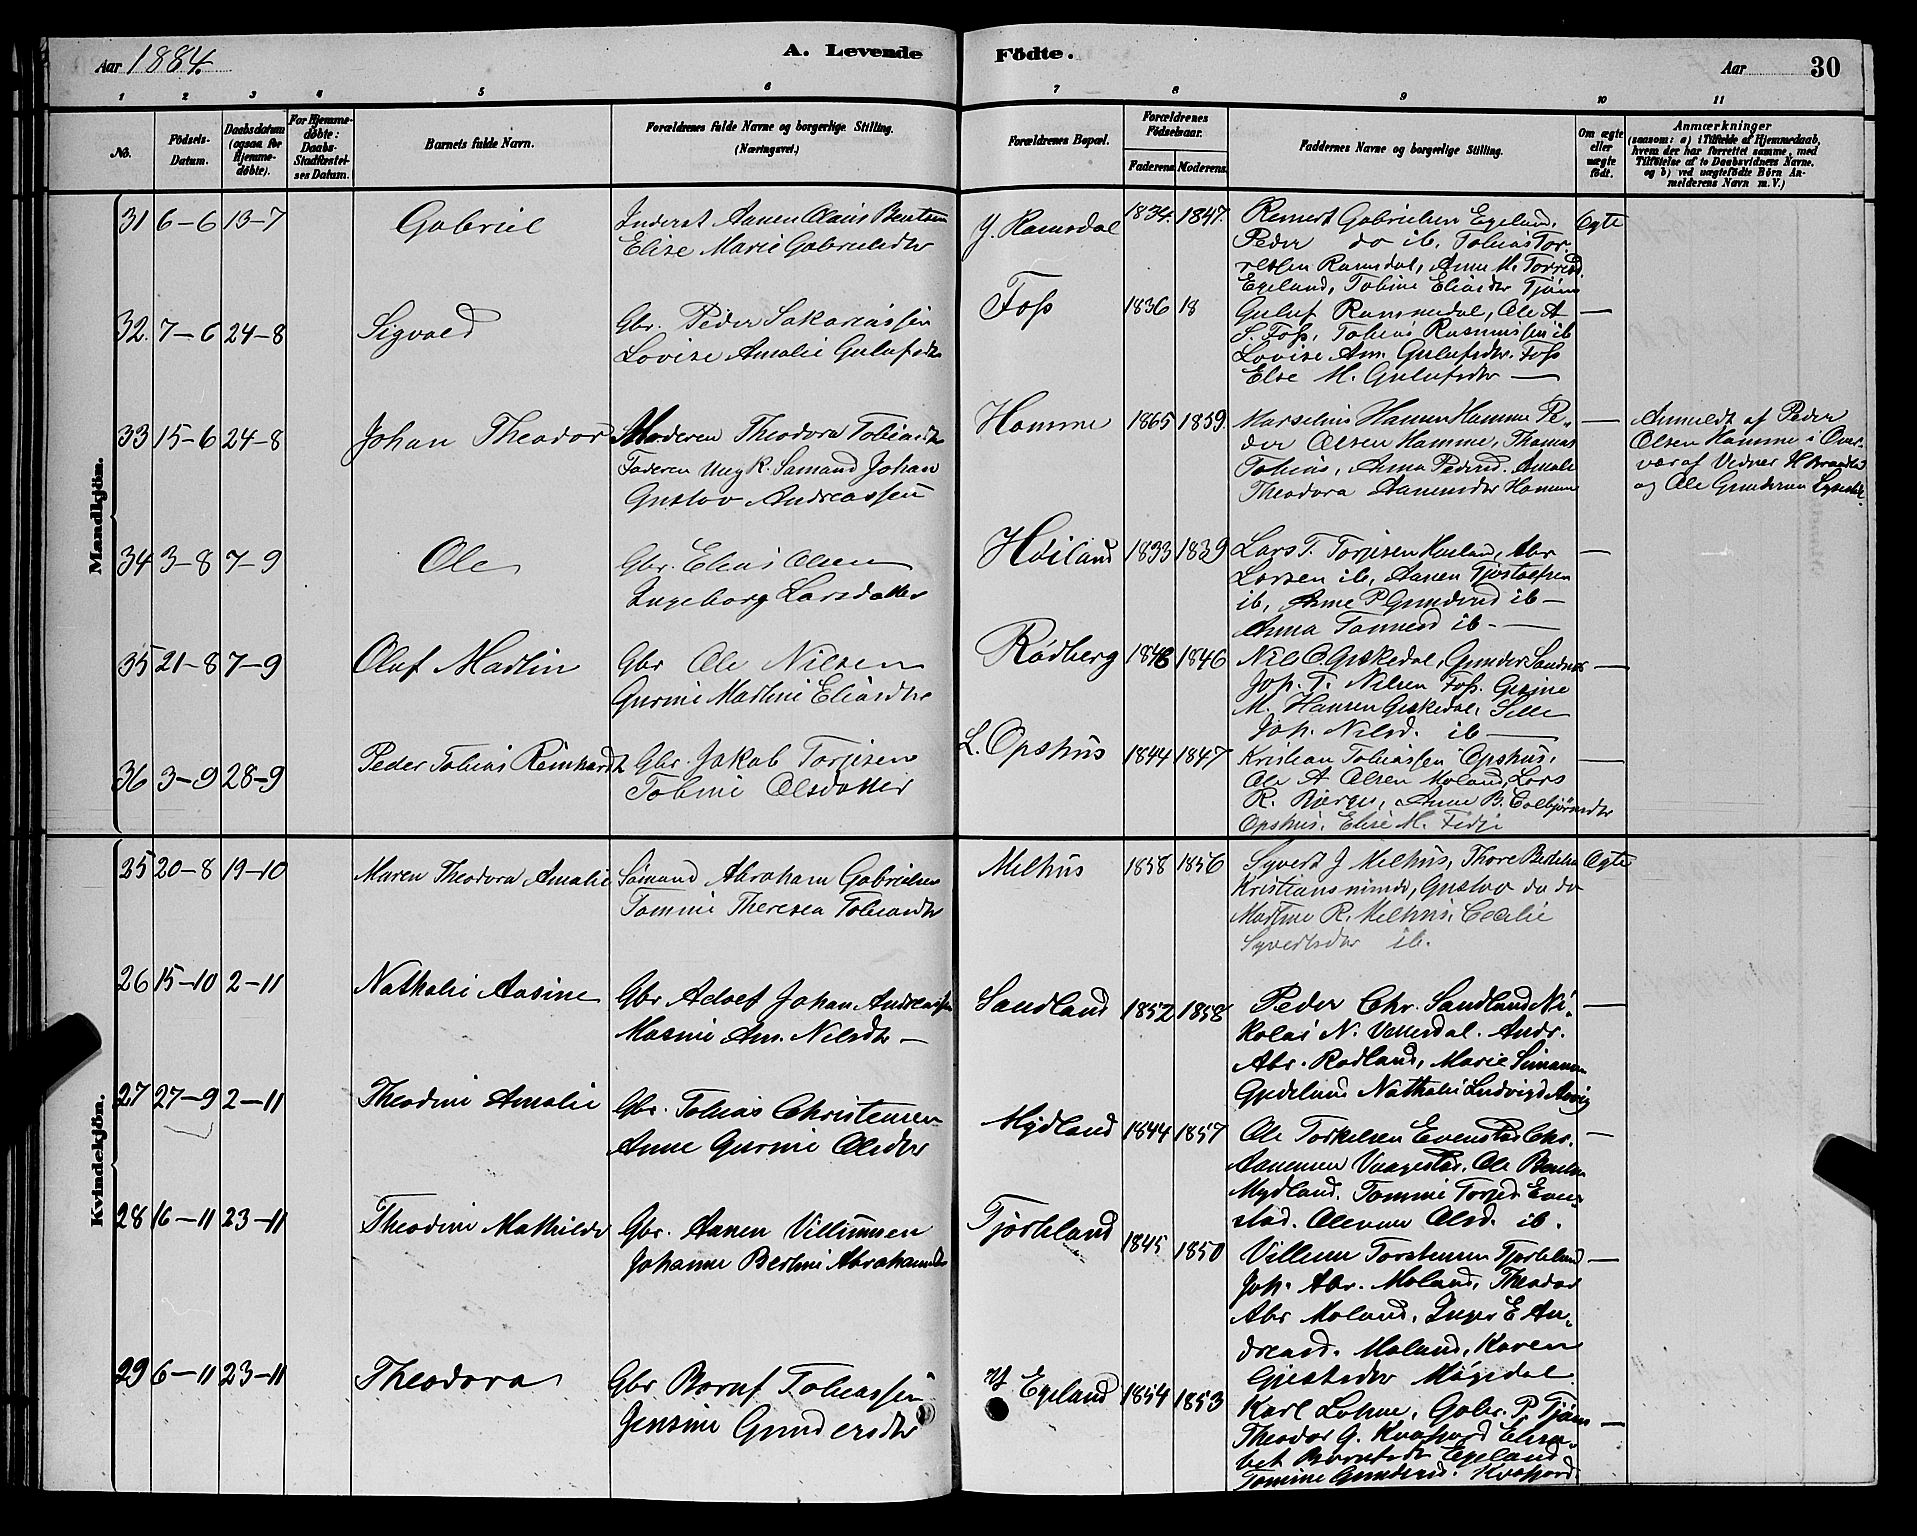 Aar 1884.
A. Levende Fødte.
Aar 30
1 2 3 4 5 6 7 8 9 10 11
No.
Födsels-
Datum.
Daabsdatum
(ogsaa for
Hjemme-
døbte).
For Hjemme-
døbte:
Daabs-
Stadfæstel-
ses Datum.
Barnets fulde Navn.
Forældrenes fulde Navne og borgerlige Stilling.
(Næringsvei.)
Forældrenes Bopæl.
Forældrenes
Födselsaar.
Faderens Moderens.
Faddernes Navne og borgerlige Stilling.
Om ægte
eller
uægte
födt.
Anmærkninger
(saasom: a) i Tilfælde af Hjemmedaab,
hvem der har forrettet samme, med
Tilföielse af to Daabsvidners Navne,
og b) ved uægtefödte Börn An-
melderens Navn m. V.)
Mandkjön.
31 6-6 13-7 Gabriel
Inderst Aanen Olaus Bentsen
Elise Marie Gabrielsdtr
Y. Ramsdal 1834 1847
Reinert Gabrielsen Egeland,
Peder do ib, Tobias Tor-
relsen Ramsdal, Anne M. Torjesd
Egeland, Tobine Eliasdtr Tjöm
Ægte
32. 7-6 24-8 Sigvald
Gbr. Peder Sakariassen
Lovise Amalie Gulufsdtr
Foss 1836 18
Guluf Ramsdal, Ole A
S. Foss, Tobias Rasmussen ib
Lovise Am. Gulufsdtr. Foss
Else M. Gulufsdtr —
—
33 15-6 24-8 Johan Theodor
Moderen Theodora Tobiasdtr
Faderen Ungk. Sømand Johan
Gustav Andreassen
Homme 1865 1859
Marselius Hansen Homme Pe-
der Olsen Homme, Thomas
Tobias, Anna Pedersd. Amalie
Theodora Aanensdtr Homme
—
Anmeldt af Peder
Olsen Homme i Over-
vær af Vidner H Brandt
og Ole Gundersen
34 3-8 7-9 Ole
Gbr. Elias Olsen
Ingeborg Larsdatter
Höiland 1833 1839
Lars T. Torjesen Höiland, Abr
Larsen ib, Aanen Tjöstolfsen
ib, Anne P Gundersd ib —
Anna Tonnesd ib. —
—
35 21-8 7-9 Oluf Martin
Gbr Ole Nilsen
Gurine Martine Eliasdtr
Rödberg 1846 1846
Nils O. Geskedal, Gunder Sandnes
Joh. T. Nilsen Foss, Gesine
M. Hansen Geskedal, Sille
Joh. Nilsd. ib —
—
36 3-9 28-9 Peder Tobias Reinhardt
Gbr. Jakob Torjesen
Tobine Olsdatter
L. Opshus 1844 1847
Kristian Tobiassen Opshus,
Ole A Olsen Moland, Lars
R. Bjerge, Anne B. Colbjörnsdtr
Opshus. Elise M. Fedje
—
Kvindekjön.
25 20-8 19-10 Maren Theodora Amalie
Sømand Abraham Gabrielsen
Tomine Theresea Tobiasdtr
Melhus 1858 1856
Syvert J Melhus, Thore Bertelsen
Kristianssund, Gustav do do
Martine R. Melhus, Cecilie
Syvertsdtr ib.
Ægte
26 15-10 2-11 Nathalie Aasine
Gbr Adolf Johan Andreassen
Masine Am. Nilsdtr —
Sandland 1852 1858
Peder Chr. Sandland Ni-
kolai N. Vattersdal. Andr.
Abr. Rodland, Marie Simonsen
Gjedeland Nathalie Ludvigsd Aavig
—
27 27-9 2-11 Theodine Amalie
Gbr. Tobias Christensen
Anne Gurine Olsdtr
Mydland 1844 1857
Ole Torkelsen Evenstad Chr.
Aanensen Vaagestad, Ole Bentsen
Mydland. Tomine Torjesd Even-
stad. Olenane Olsd. ib.
—
28 16-11 23-11 Theodine Mathilde
Gbr. Aanen Villumsen
Johanne Bertine Abrahamsdtr
Tjörkeland 1845 1850
Villum Torstensen Tjorkeland
Joh. Abr. Moland, Theodor
Abr Moland, Inger E An-
dreasd. Moland, Karen
Gjestsdtr Mögedal.
—
29 6-11 23-11 Theodora
Gbr Bernt Tobiassen
Jensine Gundersdtr
Y Egeland 1854 1853
Karl Lohne, Gabr. P. Tjöm
Theodor G. Kvafjord Elisa-
bet Berntsdtr Egeland
Tomine Gundersd. Kvafjord.
—